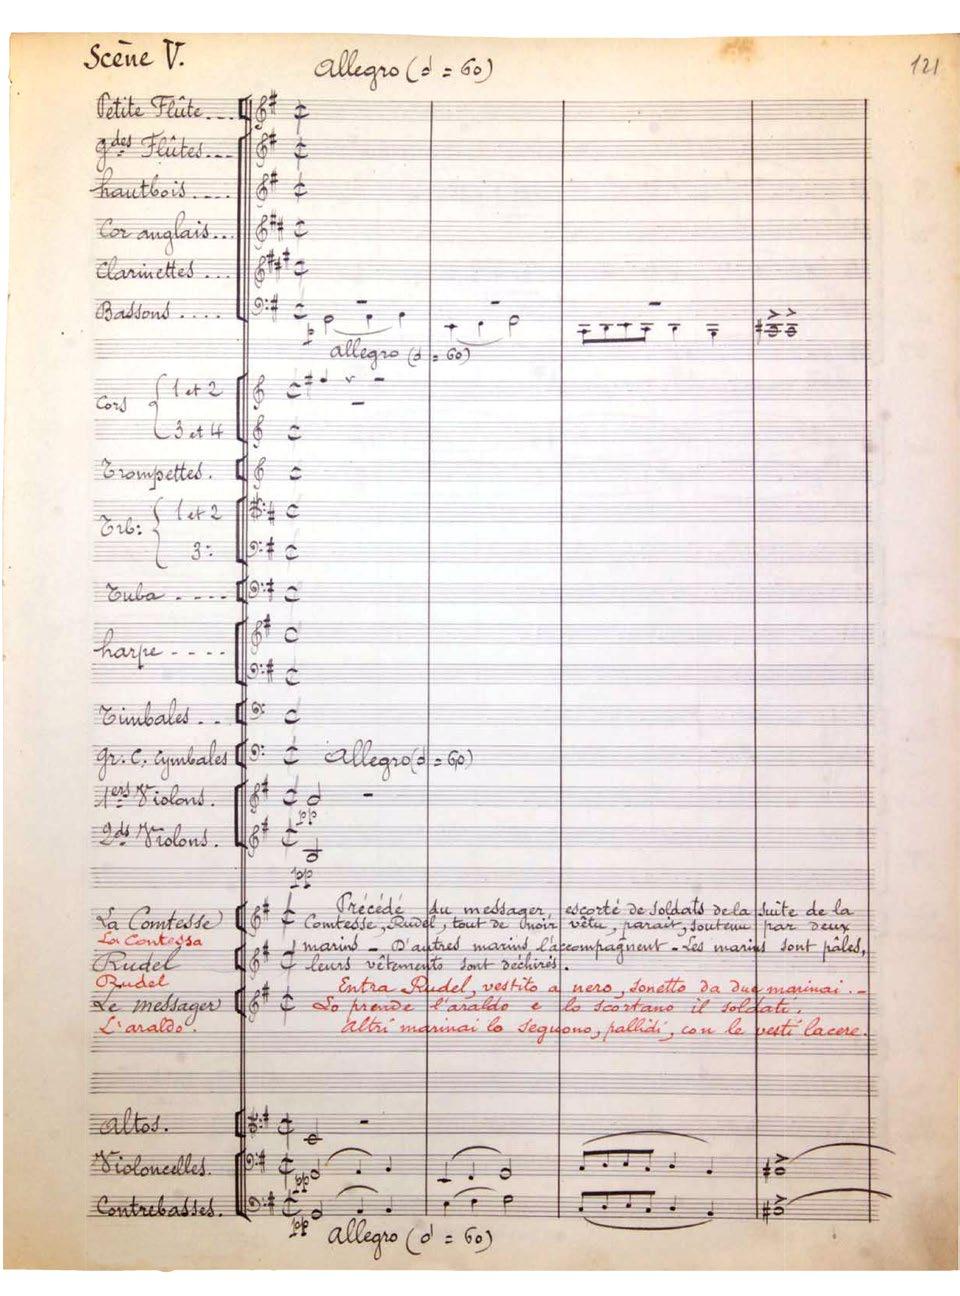 Scène V.
Allegro (𝅗𝅥 = 60)
121
Petite Flûte...
gdes Flûtes...
hautbois ....
Cor anglais...
Clarinettes ...
Bassons ....
p
Allegro (𝅗𝅥 = 60)
Cors
1 et 2
3 et 4
Trompettes.
Trb:
1 et 2
3:
Tuba . - - -
harpe - - - -
Timbales . .
Gr. C. Cymbales
Allegro (𝅗𝅥 = 60)
1ers Violons.
pp
2ds Violons.
pp
La Comtesse
La Contessa
Rudel
Rudel
Le messager
L'araldo.
Précédé du messager, escorté de soldats de la suite de la
Comtesse, Rudel, tout de noir vêtu, parait, soutenu par deux
marins _ D'autres marins l'accompagnent - Les marins sont pâles,
leurs vêtements sont déchirés.
Entra Rudel, vestito a nero, sonetto da due marinai. -
Lo prende l'araldo e lo scortano il soldati.
Altri marinai lo seguono, pallidi, con le vesti lacere.
Altos.
Violoncelles.
pp
Contrebasses.
pp
Allegro (𝅗𝅥 = 60)